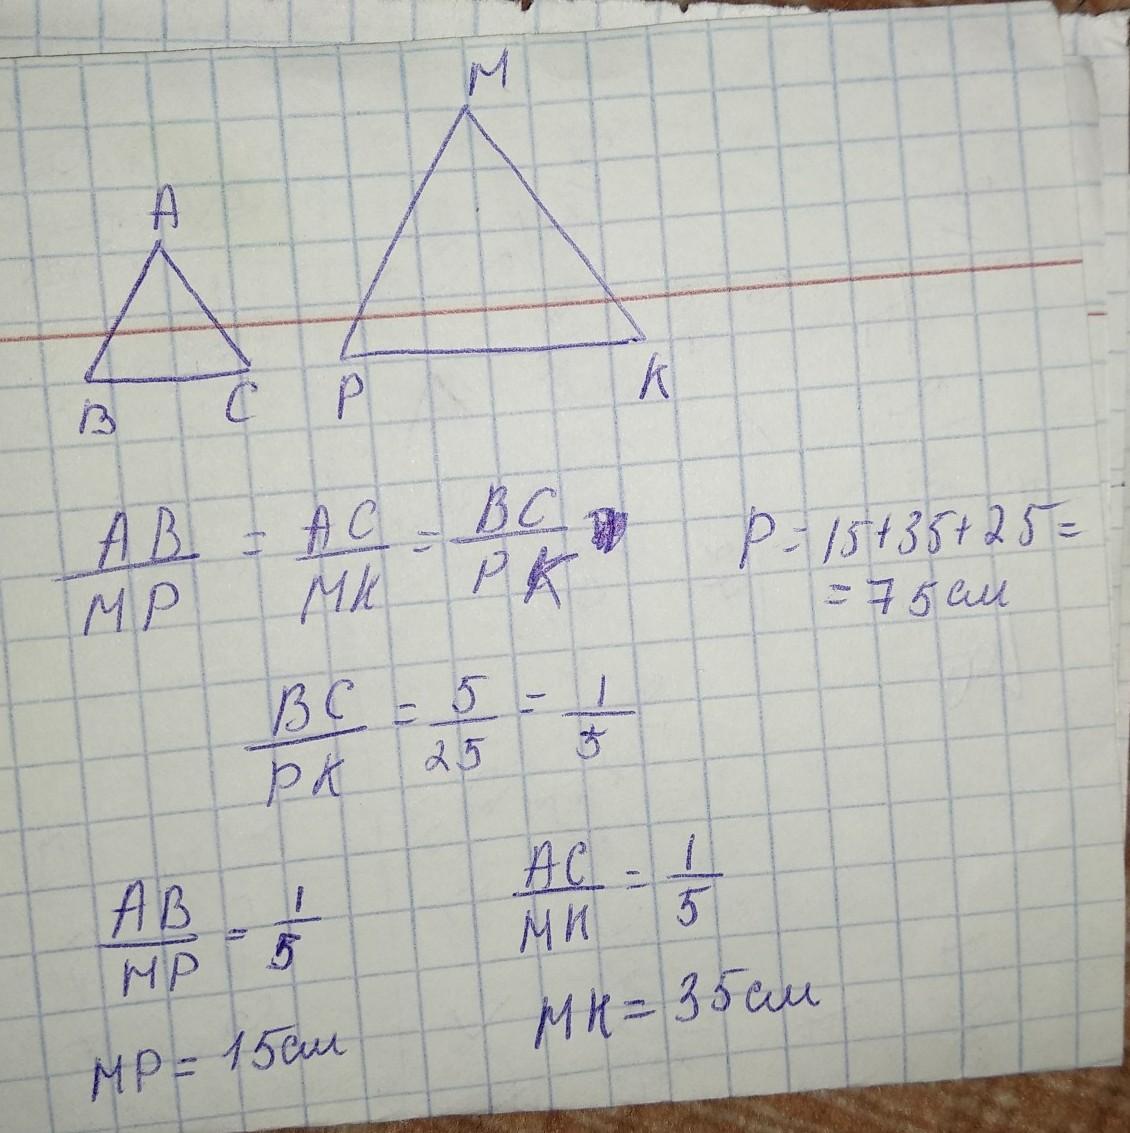 M
A
B C P K
AB/MP = AC/MK = BC/PK
P = 15+35+25=
= 75 см
BC/PK = 5/25 = 1/5
AB/MP = 1/5
AC/MK = 1/5
MP = 15 см
MK = 35 см